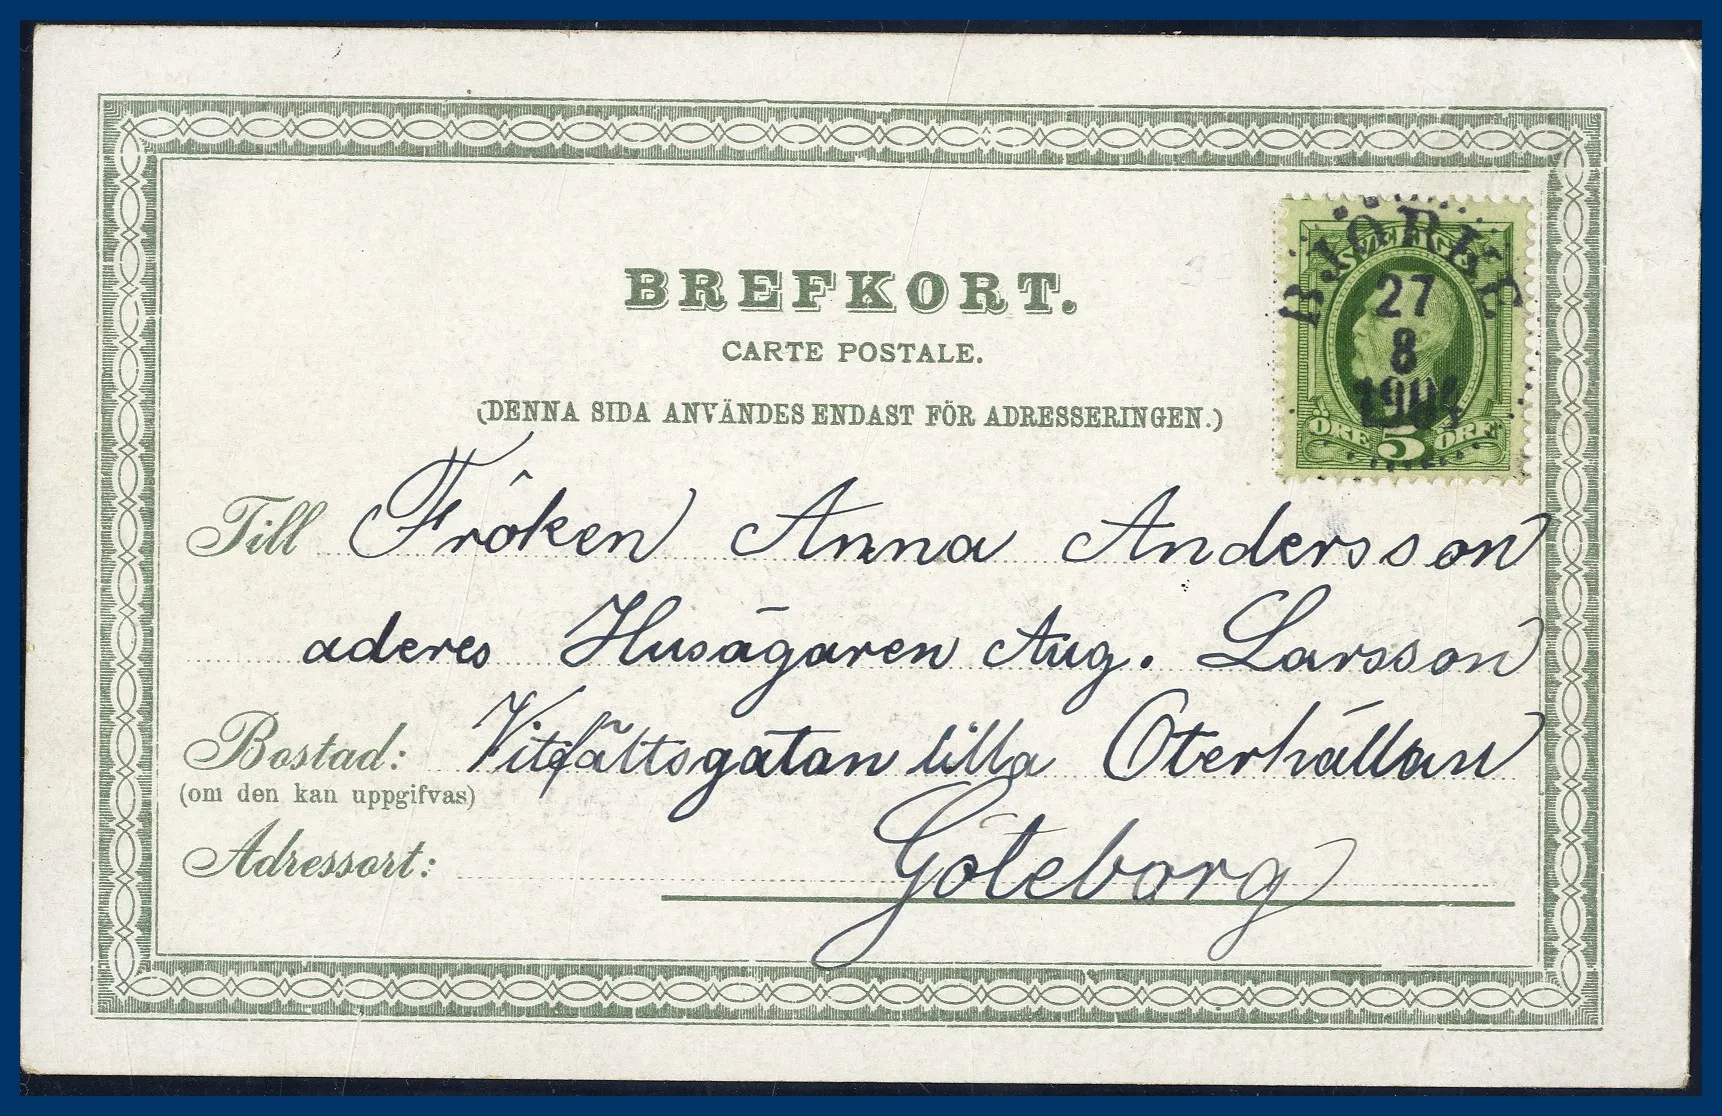 BREFKORT.
CARTE POSTALE.
(DENNA SIDA ANVÄNDES ENDAST FÖR ADRESSERINGEN.)
SVERIGE
27
8
ÖRE 5 ÖRE
Till Fröken Anna Andersson
aderes Husägaren Aug. Larsson
Bostad: Vitfältsgatan lilla Oterhällan
(om den kan uppgifvas)
Adressort: Göteborg